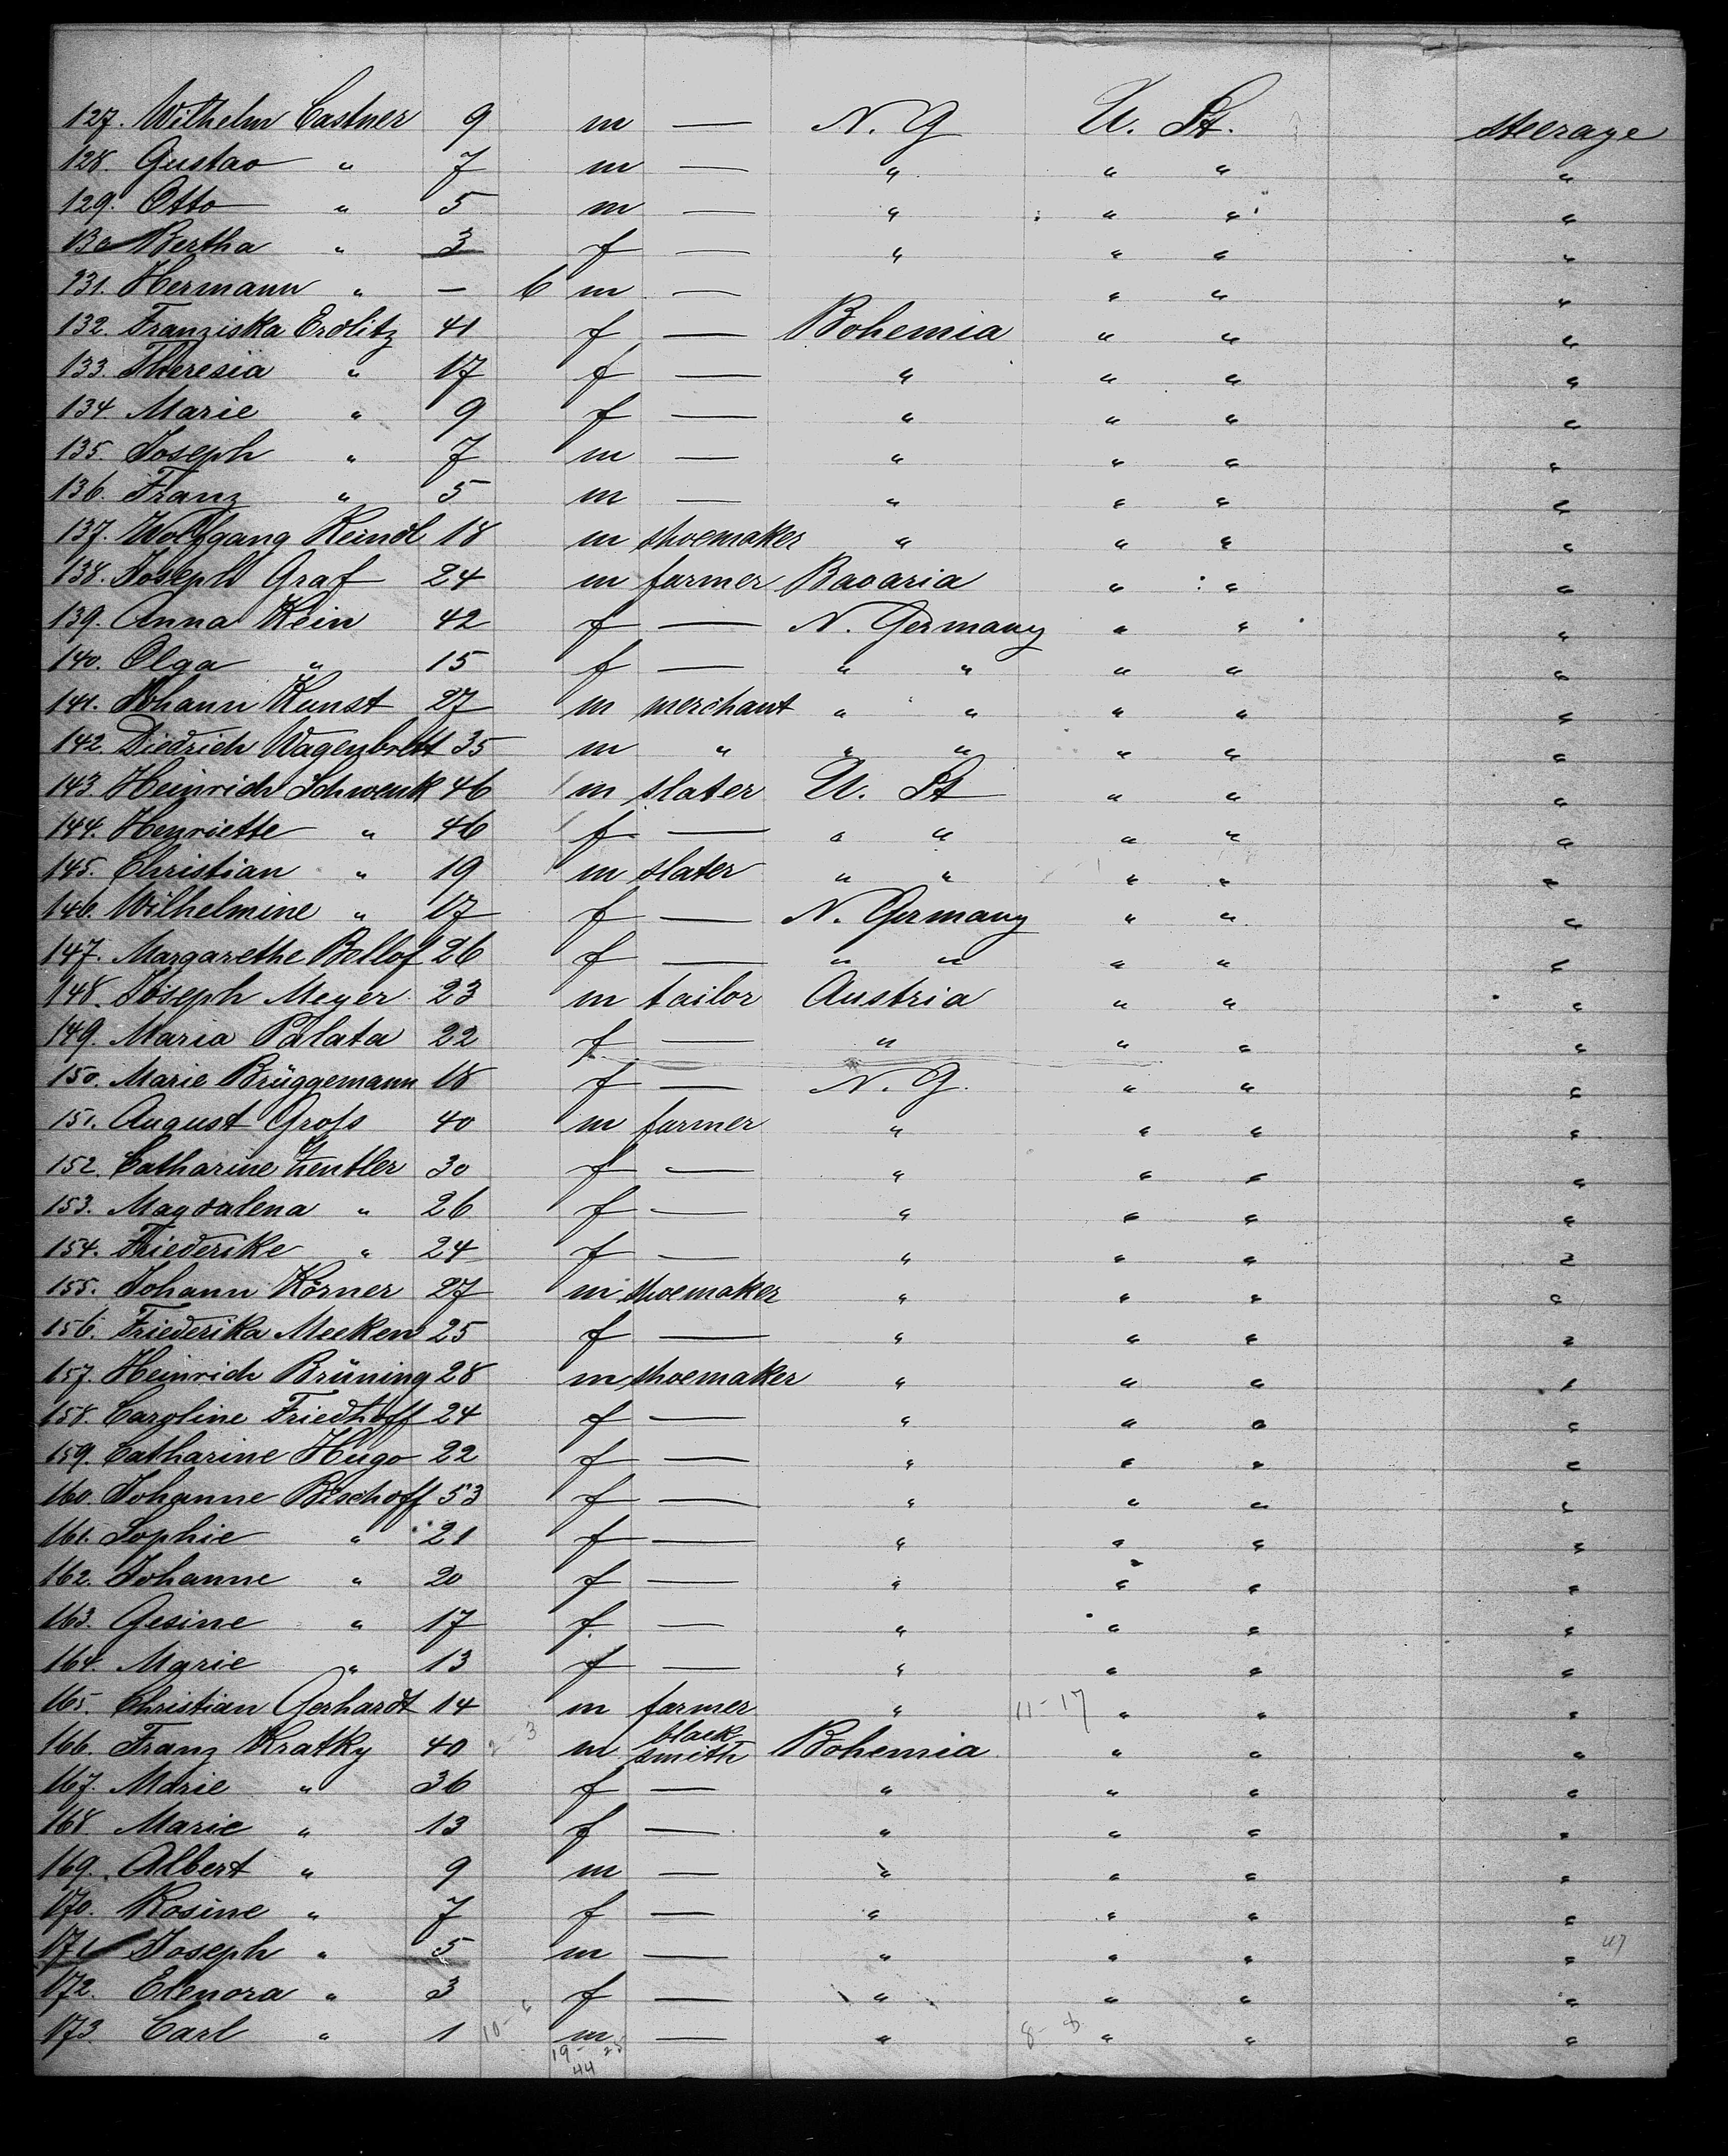 127. Wilhelm Castner 9 m — N. G U. St. steerage
128. Gustav " 7 m — " " " "
129. Otto " 5 m — " " " "
130 Bertha " 3 f — " " " "
231. Hermann " — 6 m — " " "
132. Franziska Erdlitz 41 f — Bohemia " " "
133. Theresia " 17 f — " " " "
134. Marie " 9 f — " " " "
135. Joseph " 7 m — " " " "
136. Franz " 5 m — " " " "
137. Wolfgang Reindl 18 m shoemaker " " " "
138. Joseph Graf 24 m farmer Bavaria " " "
139. Anna Rein 42 f — N. Germany " " "
140. Olga " 15 f — " " " " "
141. Johann Kunst 27 m merchant " " " " "
142. Diedrich Wagenbrett 35 m " " " " " "
143. Heinrich Schwenk 46 m slater U. St " " "
144. Henriette " 46 f — " " " " "
145. Christian " 19 m slater " " " " "
146. Wilhelmine " 17 f — N. Germany " " "
147. Margarethe Bellof 26 f — " " " " "
148. Joseph Meyer 23 m tailor Austria " " "
149. Maria Palata 22 f — " " " "
150. Marie Brüggemann 18 f — N. G. " " "
151. August Gross 40 m farmer " " " "
152. Catharine Zentler 30 f — " " " "
153. Magdalena " 26 f — " " " "
154. Friederike " 24 f — " " " "
155. Johann Körner 27 m shoemaker " " " "
156. Friederika Meeken 25 f — " " " "
157. Heinrich Brüning 28 m shoemaker " " " "
158. Caroline Friedhoff 24 f — " " " "
159. Catharine Hugo 22 f — " " " "
160. Johanne Bischoff 53 f — " " " "
161. Sophie " 21 f — " " " "
162. Johanne " 20 f — " " " "
163. Gesine " 17 f — " " " "
164. Marie " 13 f — " " " "
165. Christian Gerhardt 14 m farmer " 11-17 " " "
166. Franz Kratky 40 2-3 m black smith Bohemia " " "
167. Marie " 36 f — " " " "
168 Marie " 13 f — " " " "
169. Albert " 9 m — " " " "
170. Rosine " 7 f — " " " "
171 Joseph " 5 m — " " " "
172. Elenora " 3 f — " " " "
173 Carl " 1 10- m — " 8- " " "
19- 25
44